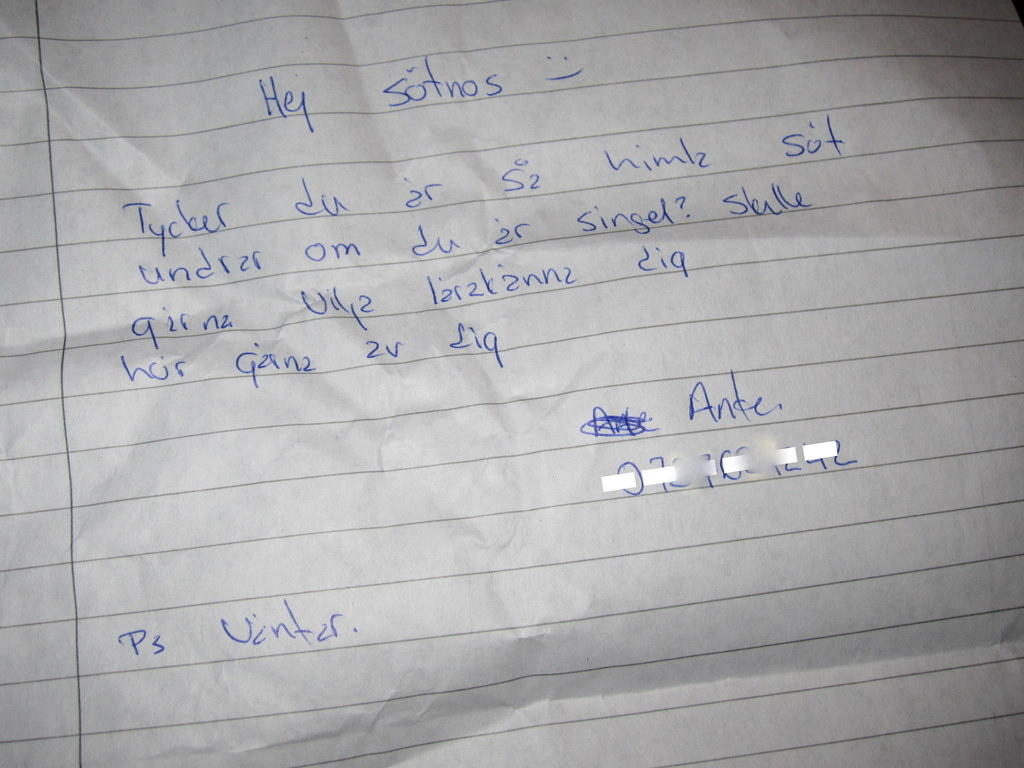 Hej sötnos :)
Tycker du är så himla söt
undrar om du är singel? skulle
gärna vilja lärakänna dig
hör gärna av dig
Ante.
Ps Väntar.